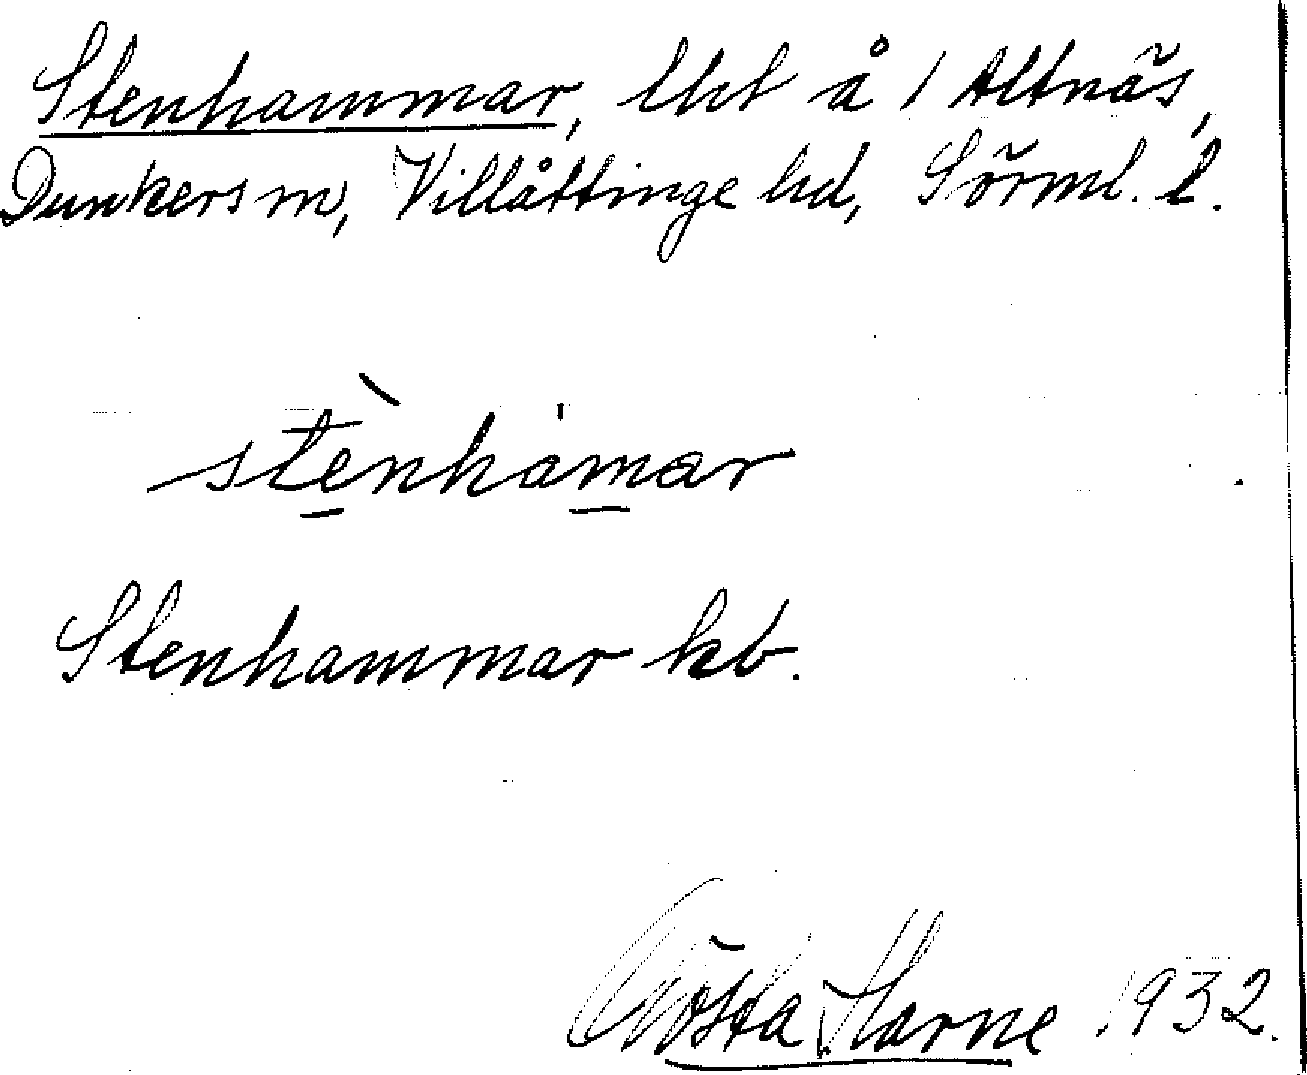 Stenhammar, lht å 1 Altnäs,
Dunkers sn, Villåttinge hd, Sörml. l.
stènhamar
Stenhammar kb.
Gösta Harne 1932.